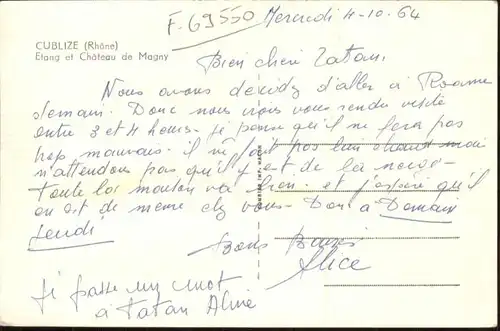 F-69550
Mercredi 4-10-64
CUBLIZE (Rhône)
Etang et Château de Magny
Bien chère Tatan,
Nous avons décidez d'aller à Roanne
demain. Donc nous irons vous rendre visite
entre 3 et 4 heures. je pense qu'il ne fera pas
trop mauvais. il ne fait pas bien chaud mai
n'attendons pas qu'il y est de la neige.
Toute la moulon va bien. et j'espère qu'il
en est de meme chez vous. Donc à Demain
jeudi
Bons Baisers
Alice
Je passe un mot
à Tatan Aline